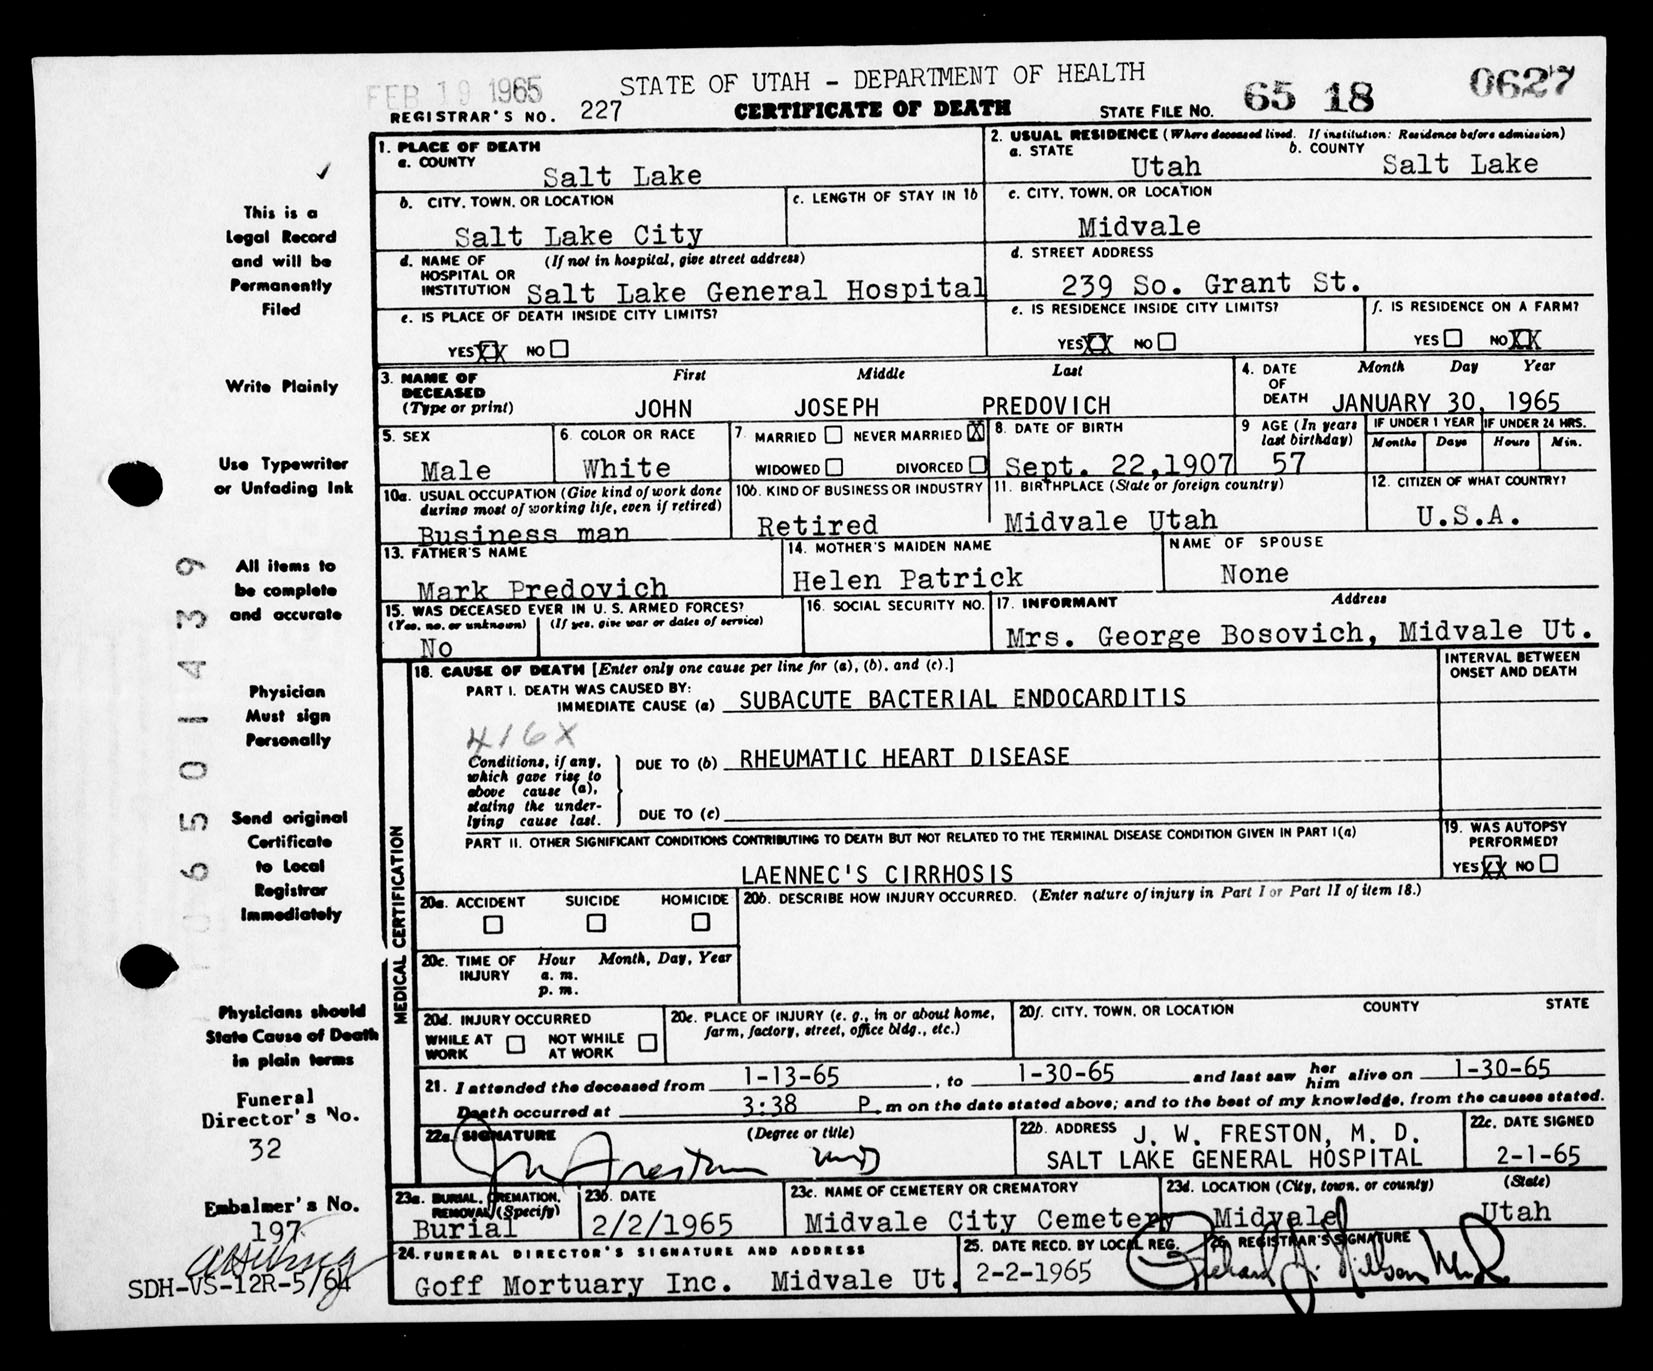 FEB 19 1965
STATE OF UTAH - DEPARTMENT OF HEALTH
REGISTRAR'S NO. 227
CERTIFICATE OF DEATH
STATE FILE NO. 65 18 0627
1. PLACE OF DEATH
a. COUNTY
Salt Lake
2. USUAL RESIDENCE (Where deceased lived. If institution: Residence before admission)
a. STATE Utah
b. COUNTY Salt Lake
b. CITY, TOWN, OR LOCATION
Salt Lake City
c. LENGTH OF STAY IN 1b
c. CITY, TOWN, OR LOCATION
Midvale
d. NAME OF HOSPITAL OR INSTITUTION (If not in hospital, give street address)
Salt Lake General Hospital
d. STREET ADDRESS
239 So. Grant St.
e. IS PLACE OF DEATH INSIDE CITY LIMITS?
YES XX NO
e. IS RESIDENCE INSIDE CITY LIMITS?
YES XX NO
f. IS RESIDENCE ON A FARM?
YES NO XX
3. NAME OF DECEASED (Type or print)
First Middle Last
JOHN JOSEPH PREDOVICH
4. DATE OF DEATH
Month Day Year
JANUARY 30, 1965
5. SEX
Male
6. COLOR OR RACE
White
7. MARRIED NEVER MARRIED X
WIDOWED DIVORCED
8. DATE OF BIRTH
Sept. 22,1907
9 AGE (In years last birthday)
57
IF UNDER 1 YEAR
Months Days
IF UNDER 24 HRS.
Hours Min.
10a. USUAL OCCUPATION (Give kind of work done during most of working life, even if retired)
Business man
10b. KIND OF BUSINESS OR INDUSTRY
Retired
11. BIRTHPLACE (State or foreign country)
Midvale Utah
12. CITIZEN OF WHAT COUNTRY?
U.S.A.
13. FATHER'S NAME
Mark Predovich
14. MOTHER'S MAIDEN NAME
Helen Patrick
NAME OF SPOUSE
None
15. WAS DECEASED EVER IN U. S. ARMED FORCES?
(Yes, no, or unknown) (If yes, give war or dates of service)
No
16. SOCIAL SECURITY NO.
17. INFORMANT Address
Mrs. George Bosovich, Midvale Ut.
MEDICAL CERTIFICATION
18. CAUSE OF DEATH [Enter only one cause per line for (a), (b), and (c).]
INTERVAL BETWEEN ONSET AND DEATH
PART I. DEATH WAS CAUSED BY:
IMMEDIATE CAUSE (a) SUBACUTE BACTERIAL ENDOCARDITIS
416X
Conditions, if any, which gave rise to above cause (a), stating the underlying cause last.
DUE TO (b) RHEUMATIC HEART DISEASE
DUE TO (c)
PART II. OTHER SIGNIFICANT CONDITIONS CONTRIBUTING TO DEATH BUT NOT RELATED TO THE TERMINAL DISEASE CONDITION GIVEN IN PART I(a)
LAENNEC'S CIRRHOSIS
19. WAS AUTOPSY PERFORMED?
YES XX NO
20a. ACCIDENT SUICIDE HOMICIDE
20b. DESCRIBE HOW INJURY OCCURRED. (Enter nature of injury in Part I or Part II of item 18.)
20c. TIME OF INJURY
Hour Month, Day, Year
a. m.
p. m.
20d. INJURY OCCURRED
WHILE AT WORK NOT WHILE AT WORK
20e. PLACE OF INJURY (e. g., in or about home, farm, factory, street, office bldg., etc.)
20f. CITY, TOWN, OR LOCATION COUNTY STATE
21. I attended the deceased from 1-13-65, to 1-30-65 and last saw her him alive on 1-30-65
Death occurred at 3:38 P. m on the date stated above; and to the best of my knowledge, from the causes stated.
22a. SIGNATURE (Degree or title)
J W Freston MD
22b. ADDRESS J. W. FRESTON, M. D.
SALT LAKE GENERAL HOSPITAL
22c. DATE SIGNED
2-1-65
23a. BURIAL, CREMATION, REMOVAL (Specify)
Burial
23b. DATE
2/2/1965
23c. NAME OF CEMETERY OR CREMATORY
Midvale City Cemetery
23d. LOCATION (City, town, or county) (State)
Midvale Utah
24. FUNERAL DIRECTOR'S SIGNATURE AND ADDRESS
Goff Mortuary Inc. Midvale Ut.
25. DATE RECD. BY LOCAL REG.
2-2-1965
26. REGISTRAR'S SIGNATURE
This is a
Legal Record
and will be
Permanently
Filed
Write Plainly
Use Typewriter
or Unfading Ink
All items to
be complete
and accurate
Physician
Must sign
Personally
Send original
Certificate
to Local
Registrar
Immediately
Physicians should
State Cause of Death
in plain terms
Funeral
Director's No.
32
Embalmer's No.
197
SDH-VS-12R-5/64